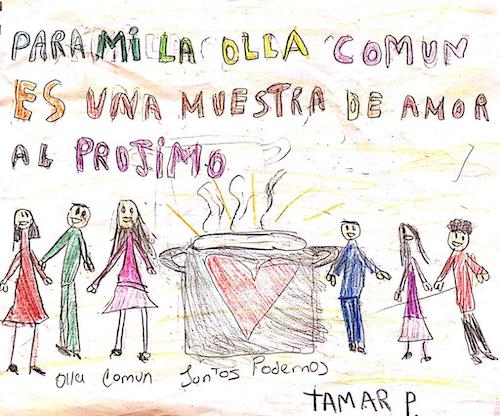 PARA MI LA OLLA COMUN
ES UNA MUESTRA DE AMOR
AL PROJIMO
Olla Comun Juntos Podemos
TAMAR P.